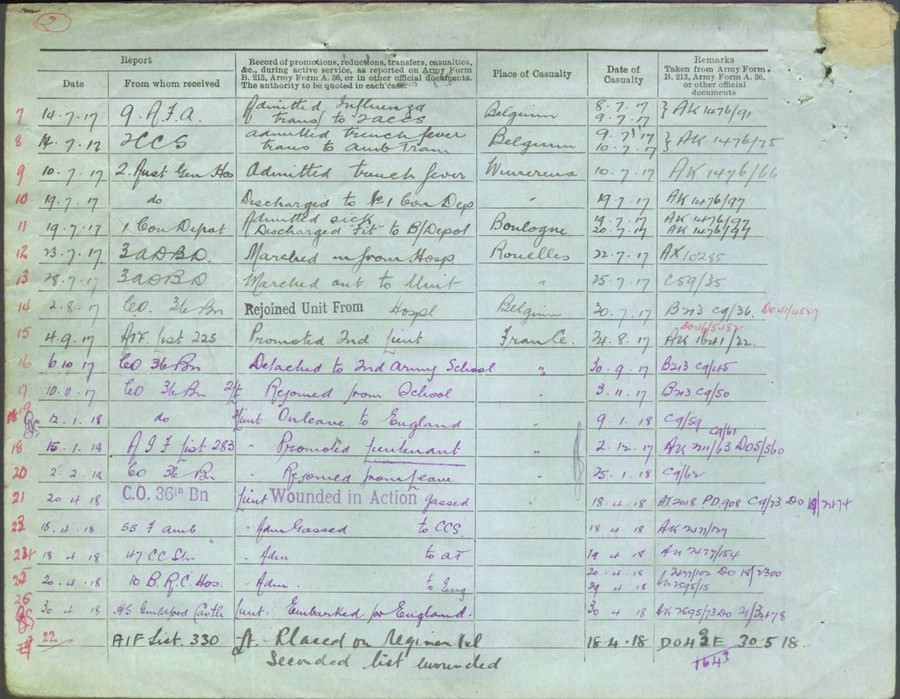 2
Report
Date
From whom received
Record of promotions, reductions, transfers, casualties,
&c., during active service, as reported on Army Form
B. 213, Army Form A. 36, or in other official documents.
The authority to be quoted in each case.
Place of Casualty
Date of
Casualty
Remarks
Taken from Army Form
B. 213, Army Form A. 36,
or other official
documents
7 14.7.17 9 A.F.A. Admitted Influenza Belgium 8.7.17 } AK 1476/91
trans to 2 ACCS 9.7.17
8 14.7.17 2CCS admitted trench fever Belgium 9.7.17 } AK 1476/75
trans to Amb Train 10.7.17
9 10.7.17 2 Aust Gen Hos Admitted trench fever Wimereux 10.7.17 AK 1476/66
10 19.7.17 do Discharged to No 1 Con Dep " 19.7.17 AK 1476/97
11 19.7.17 1 Con Depot Admitted sick Boulogne 19.7.17 AK 1476/97
Discharged "Fit" to B/Depot 20.7.17 AK 1476/97
12 23.7.17 3 ADBD Marched in from Hosp Rouelles 22.7.17 AK 10285
13 28.7.17 3 ADBD Marched out to Unit " 25.7.17 C59/35
14 2.8.17 CO. 36 Bn Rejoined Unit From Hospl Belgium 30.7.17 B213 C9/36. DO41/4527
15 4.9.17 AIF List 225 Promoted 2nd Lieut France. 24.8.17 AK 1641/22. DO46/5452
16 6 10 17 CO 36 Bn Detached to 2nd Army School " 30.9.17 B213 C9/45
17 10.11.17 CO 36 Bn 2/Lt Rejoined from School " 3.11.17 B213 C9/50
12.1.18 do 2/Lieut On Leave to England " 9.1.18 C9/59
18 15.1.18 A I F List 283 " Promoted Lieutenant " 2.12.17 AK 2111/63 DO5/560 C9/61
20 2.2.18 CO 36 Bn " Rejoined from Leave " 25.1.18 C9/62
21 20 4 18 C.O. 36th Bn Lieut Wounded in Action gassed " 18.4.18 P.D.908 C9/73 DO 19/2474
18.4.18 55 F amb " Adm Gassed to CCS. 18 4 18 AK 2477/127
18 4 18 47 CC Stn " Adm to AT 19 4 18 AK 2477/154
25 20.4.18 10 B.R.C Hos. " Adm. to Eng 20.4.18 2477/102 DO 18/2300
29 4 18 2595/15
26 30 4 18 HS Guildford Castle Lieut. Embarked for England. 30 4 18 AK 2595/73 DO 21/2478
22 AIF List. 330 Lt. Placed on Regimental 18.4.18 DO43E 30 5 18
Seconded list wounded 1643